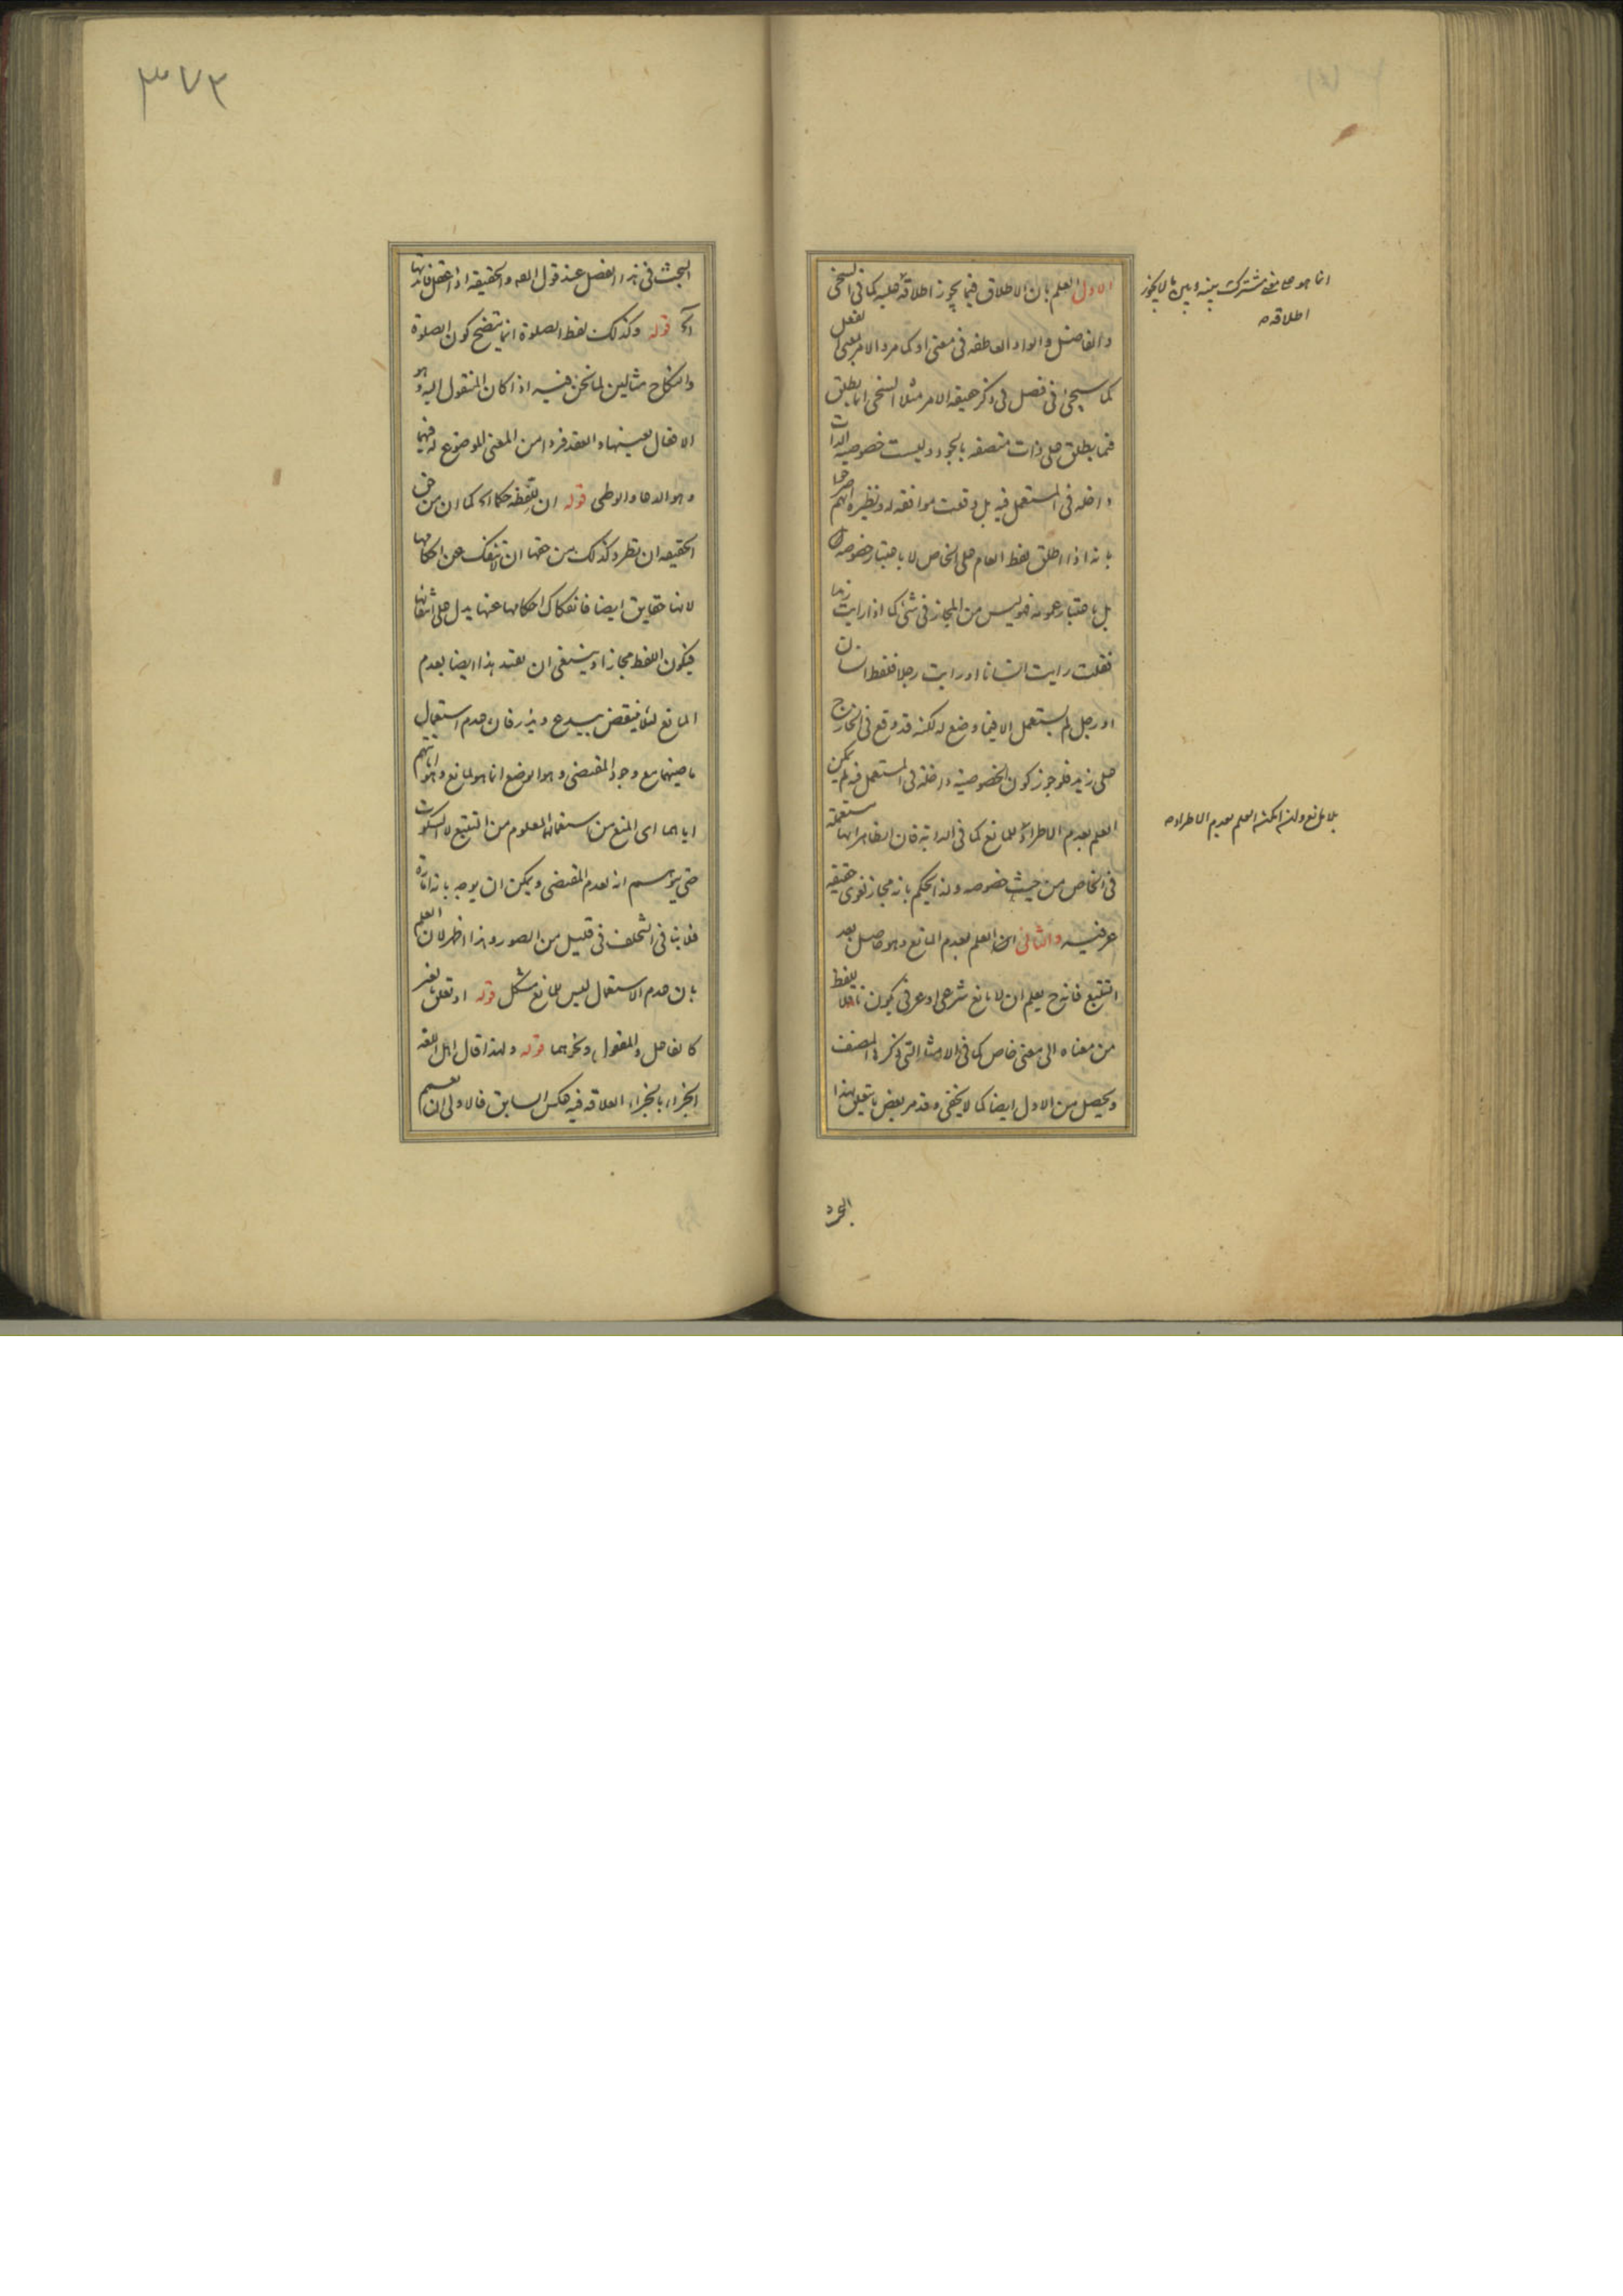 الاول العلم بان الاطلاق فيما يجوز اطلاقه عليه كما فى السخى
والفاضل والواو العاطفه فى معنى او كما مر والامر بمعنى الفعل
كما سيجئ فى فصل فى ذكر حقيقه الامر مثلا السخى انما يطلق
فيما يطلق على ذات متصفه بالجود وليست خصوصيه الذات
داخله فى المستعمل فيه بل وقعت موافقه له ونظيره
بانه اذا اطلق لفظ العام على الخاص لا باعتبار خصوصه
بل باعتبار عمومه فليس من المجاز فى شئ كما اذا رايت زيدا
فقلت رايت انسانا او رايت رجلا فلفظ انسان
او رجل لم يستعمل الا فيما وضع له لكنه قد وقع فى الخارج
على زيد فلو جوز كون الخصوصيه داخله فى المستعمل فيه لم يمكن
العلم بعدم الاطراد للمانع كما فى الدابة فان الظاهر انها مستعملة
فى الخاص من حيث خصوصه ولذا يحكم بانه مجاز لغوى حقيقه
عرفيه والثانى العلم بعدم المانع وهو حاصل بعد
التتبع فانه ح يعلم ان لا مانع شرعى او عرفى يكون ناقلا للفظ
من معناه الى معنى خاص كما فى الامثلة التى ذكرها المصنف
ويحصل من الاول ايضا كما لا يخفى وقد مر بعض ما يتعلق بهذا
انما هو معنى مشترك بينه وبين ما لا يجوز
اطلاقه
بلا مانع ولذا يمكنه العلم بعدم الاطراد
البحث
٣٧٢
البحث فى هذا الفصل عند قول المص والحقيقه اذا
آه قوله وكذلك لفظ الصلوة انما يتضح كون الصلوة
والنكاح مثالين لما نحن فيه اذا كان المنقول اليه وهو
الافعال بعينها والعقد فردا من المعنى الموضوع له فيهما
وهو الدعا والوطى قوله ان للفظه حكما آه كما ان من حق
الحقيقه ان يطرد كذلك من حقها ان لا تنفك عن احكامها
لانها حقايق ايضا فانفكاك احكامها عنها يدل على انتفائها
فيكون اللفظ مجازا وينبغى ان يقيد هذا ايضا بعدم
المانع لئلا ينقض بيدع ويذر فان عدم استعمال
ماضيهما مع وجود المقتضى وهو الوضع انما هو لمانع وهو
اياهما اى المنع من استعمالهما المعلوم من التتبع لا السكوت
حتى يتوهم انه لعدم المقتضى ويمكن ان يوجه بانه امارة
فلا ينافى التخلف فى قليل من الصور وهذا اظهر لان العلم
بان عدم الاستعمال ليس للمانع مشكل قوله او تعلق بغير
كالفاعل والمفعول ونحوهما قوله ولهذا قال اهل اللغه
الجزاء بالجزاء العلاقه فيه عكس السابق فالاولى ان